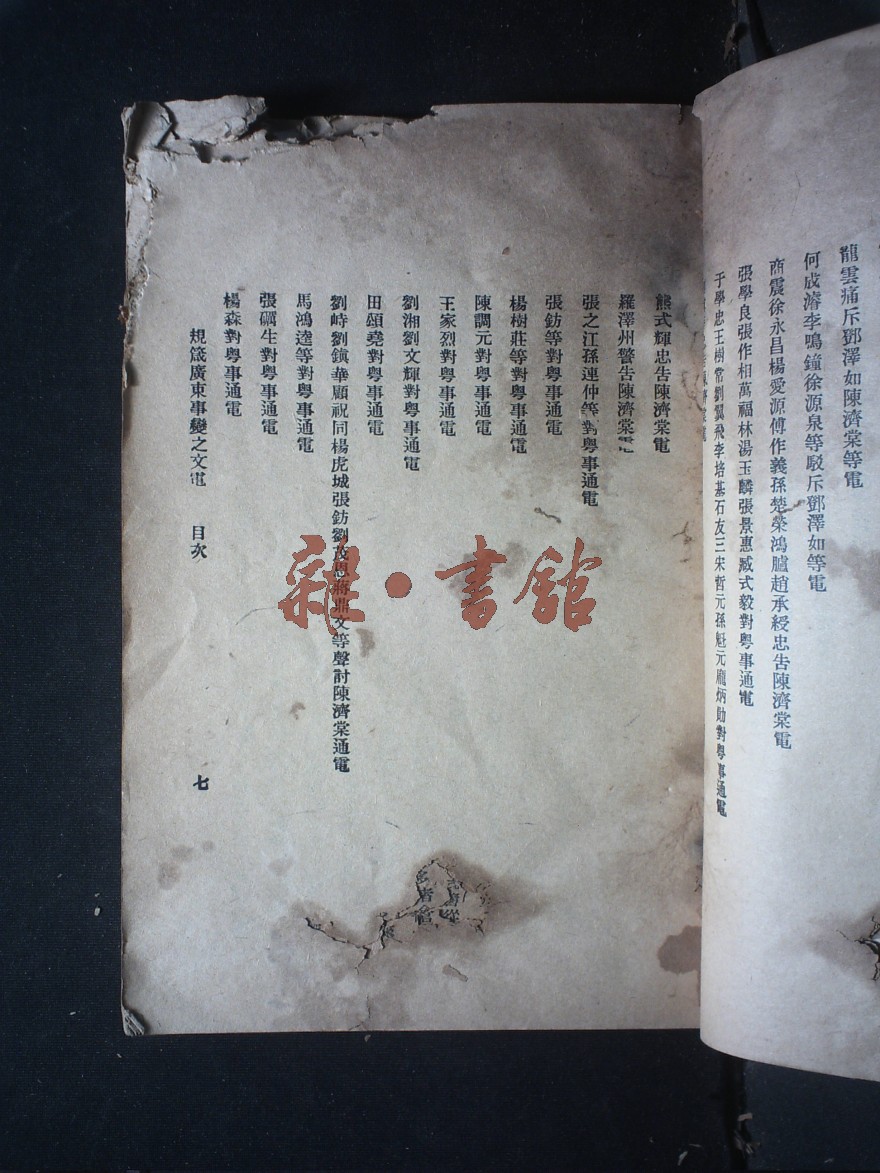 龍雲痛斥鄧澤如陳濟棠等電
何成濬李鳴鐘徐源泉等駁斥鄧澤如等電
商震徐永昌楊愛源傅作義孫楚榮鴻臚趙承綬忠告陳濟棠電
張學良張作相萬福林湯玉麟張景惠臧式毅對粤事通電
于學忠王樹常劉翼飛李培基石友三宋哲元孫魁元龐炳勛對粤事通電
熊式輝忠告陳濟棠電
羅澤州警告陳濟棠電
張之江孫連仲等對粤事通電
張鈁等對粤事通電
楊樹莊等對粤事通電
陳調元對粤事通電
王家烈對粤事通電
劉湘劉文輝對粤事通電
田頌堯對粤事通電
劉峙劉鎮華顧祝同楊虎城張鈁劉茂恩蔣鼎文等聲討陳濟棠通電
馬鴻逵等對粤事通電
張礀生對粤事通電
楊森對粤事通電
規箴廣東事變之文電 目次
七
雜·書館